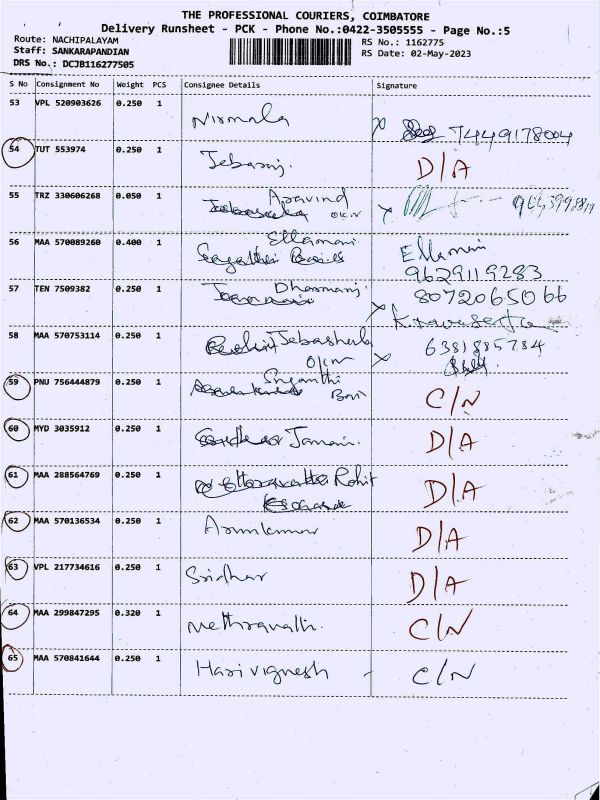 THE PROFESSIONAL COURIERS, COIMBATORE
Delivery Runsheet - PCK - Phone No.:0422-3505555 - Page No.:5
Route: NACHIPALAYAM RS No.: 1162775
Staff: SANKARAPANDIAN RS Date: 02-May-2023
DRS No.: DCJB116277505
S No Consignment No Weight PCS Consignee Details Signature
53 VPL 520903626 0.250 1 Nirmala x 7449178004
54 TUT 553974 0.250 1 Jebaraj. D/A
55 TRZ 330606268 0.050 1 Aravind
x
56 MAA 570089260 0.400 1 Ellamani Ellamani
9629119283
57 TEN 7509382 0.250 1 Dharmaraj. 8072065066
x
58 MAA 570753114 0.250 1 Jebasherly 6381885784
x
59 PNU 756444879 0.250 1 Suganthi C/N
60 MYD 3035912 0.250 1 D/A
61 MAA 288564769 0.250 1 Rohit D/A
62 MAA 570136534 0.250 1 Arunkumar D/A
63 VPL 217734616 0.250 1 Sridhar D/A
64 MAA 299847295 0.320 1 Methravathi. C/N
65 MAA 570841644 0.250 1 Harivignesh - C/N